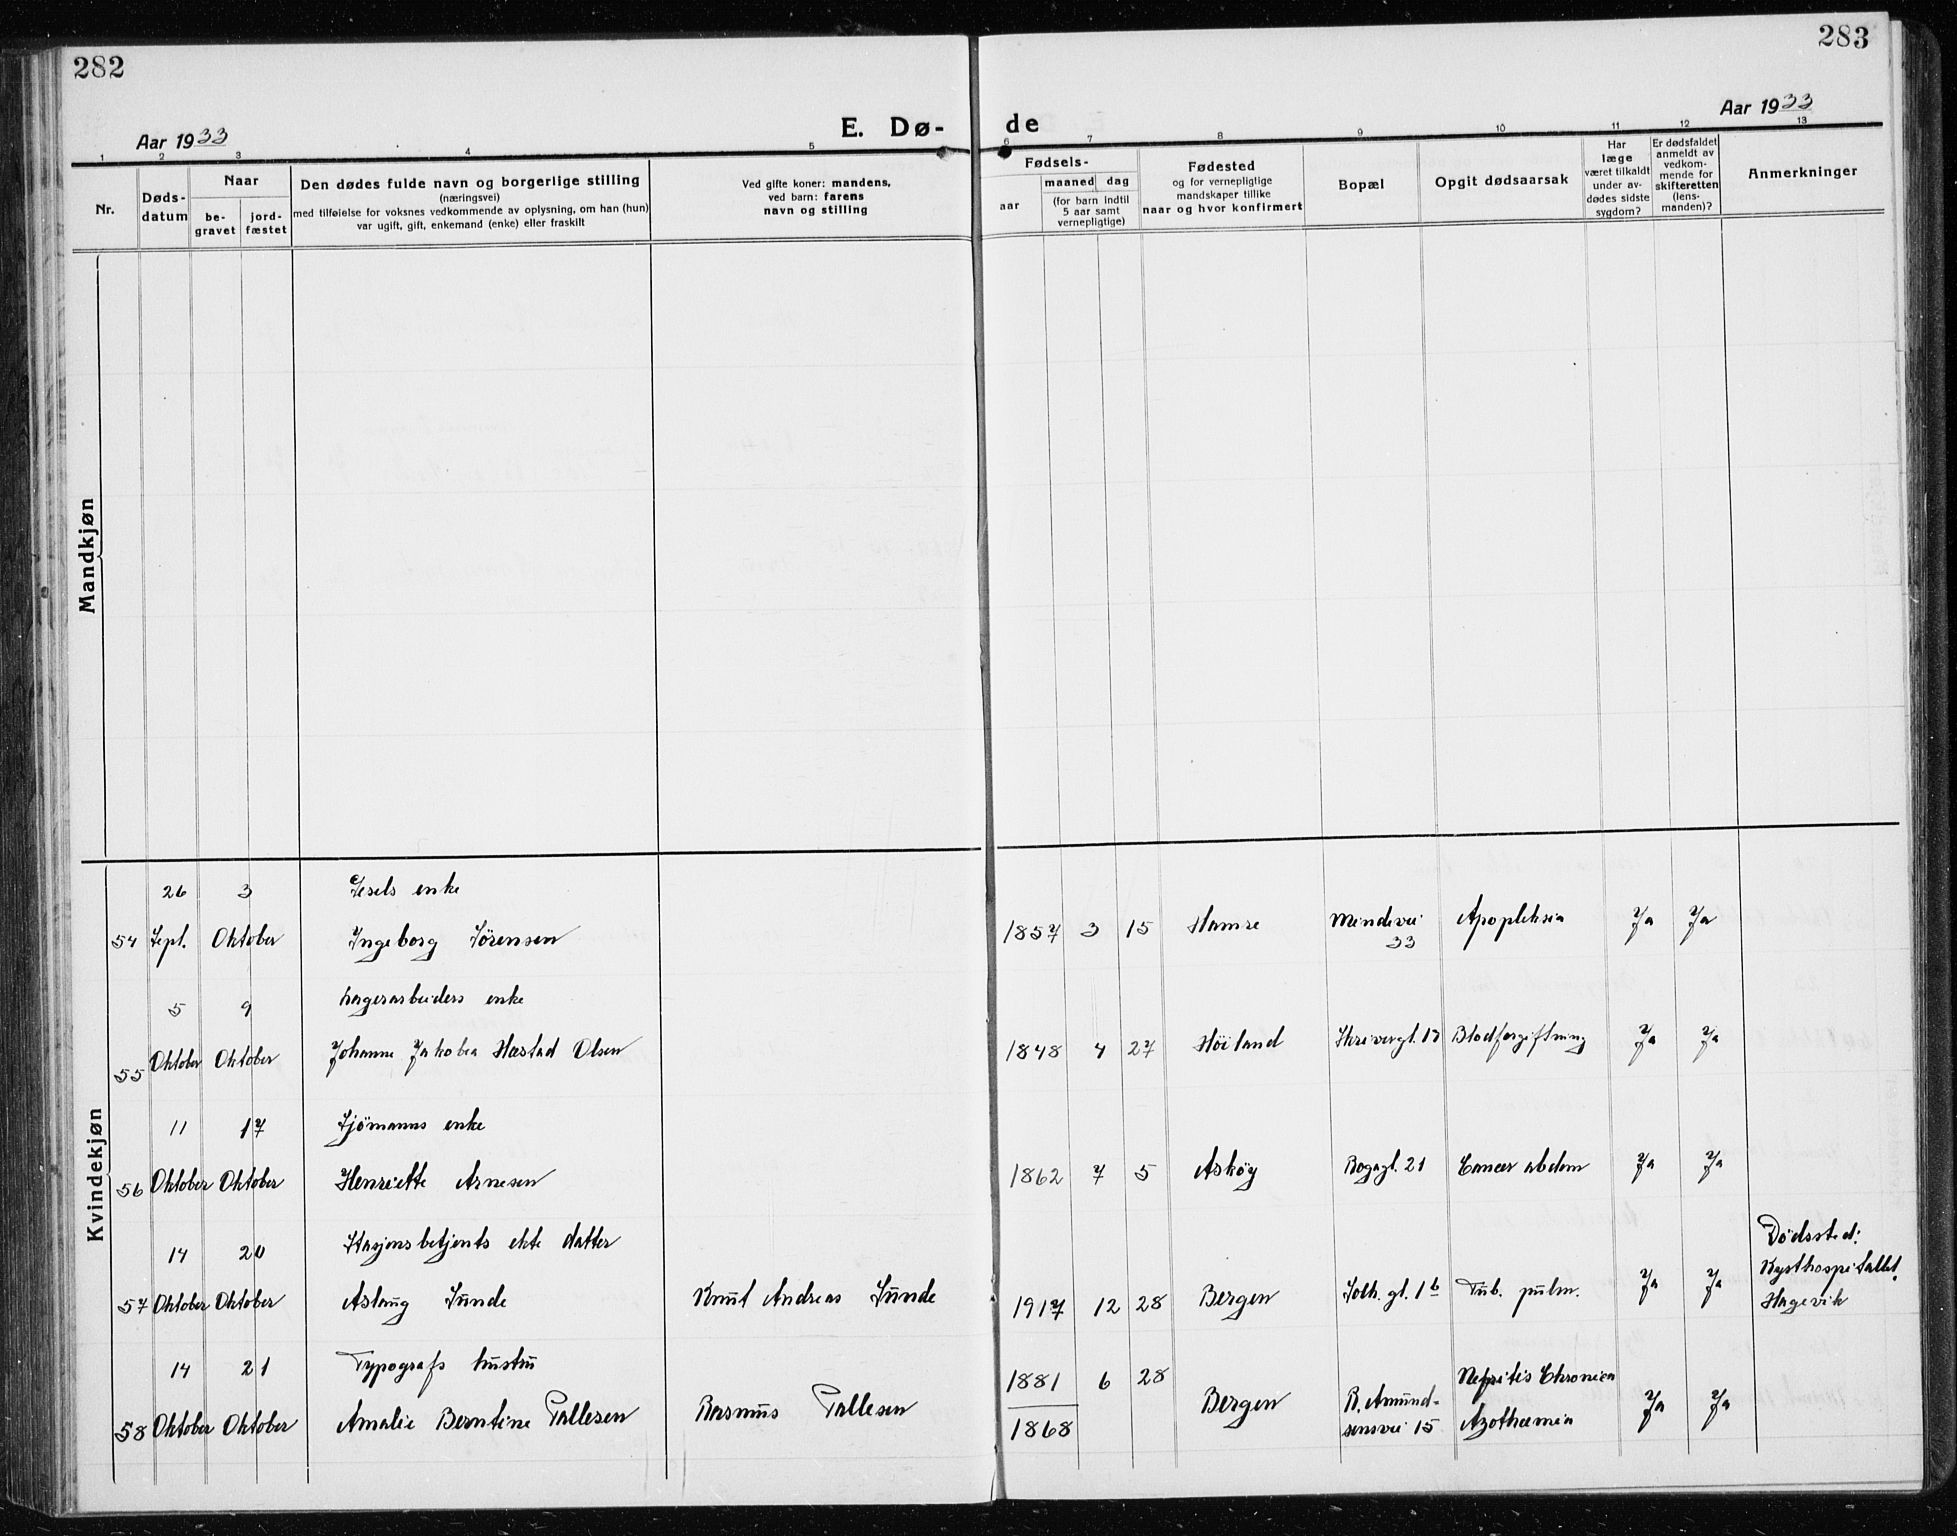 282
283
Aar 1933
E. Dø-
de
Aar 1933
1 2 3 4 5 6 7 8 9 10 11 12 13
Nr.
Døds-
datum
Naar
be-
gravet
jord-
fæstet
Den dødes fulde navn og borgerlige stilling
(næringsvei)
med tilføielse for voksnes vedkommende av oplysning, om han (hun)
var ugift, gift, enkemand (enke) eller fraskilt
Ved gifte koner: mandens,
ved barn: farens
navn og stilling
Fødsels-
aar
maaned dag
(for barn indtil
5 aar samt
vernepligtige)
Fødested
og for vernepligtige
mandskaper tillike
naar og hvor konfirmert
Bopæl
Opgit dødsaarsak
Har
læge
været tilkaldt
under av-
dødes sidste
sygdom?
Er dødsfaldet
anmeldt av
vedkom-
mende for
skifteretten
(lens-
manden)?
Anmerkninger
Mandkjøn
Kvindekjøn
26 3 enke
54 Sept. Oktober Ingeborg Sørensen 1857 3 15 Hamre Mindevei 33 Apopleksia Ja Ja
5 9 Lagerarbeiders enke
55 Oktober Oktober Johanne Jakobea Hæstad Olsen 1848 4 27 Höiland Skrivergt. 13 Blodforgiftning Ja Ja
11 17 Sjömanns enke
56 Oktober Oktober Henriette Arnesen 1862 7 5 Askøy 21 Cancer abdom Ja Ja
14 20 Stasjonsbetjents ekte datter
57 Oktober Oktober Aslaug Sunde Knut Andreas Sunde 1917 12 28 Bergen Solh. gt. 1b Tub. pulm. Ja Ja Dödssted:
Kysthospitallet,
Hagevik
14 21 Typografs hustru
58 Oktober Oktober Amalie Berntine Tallesen Rasmus Tallesen 1881 6 28 Bergen R. Amund-
sensvei 15 Nefritis Chronica
Azothæmia Ja Ja
1868